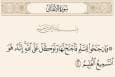 سورة الأنفال
﴿وَإِن جَنَحُوا۟ لِلسَّلْمِ فَٱجْنَحْ لَهَا وَتَوَكَّلْ عَلَى ٱللَّهِ إِنَّهُۥ هُوَ
ٱلسَّمِيعُ ٱلْعَلِيمُ ٦١﴾